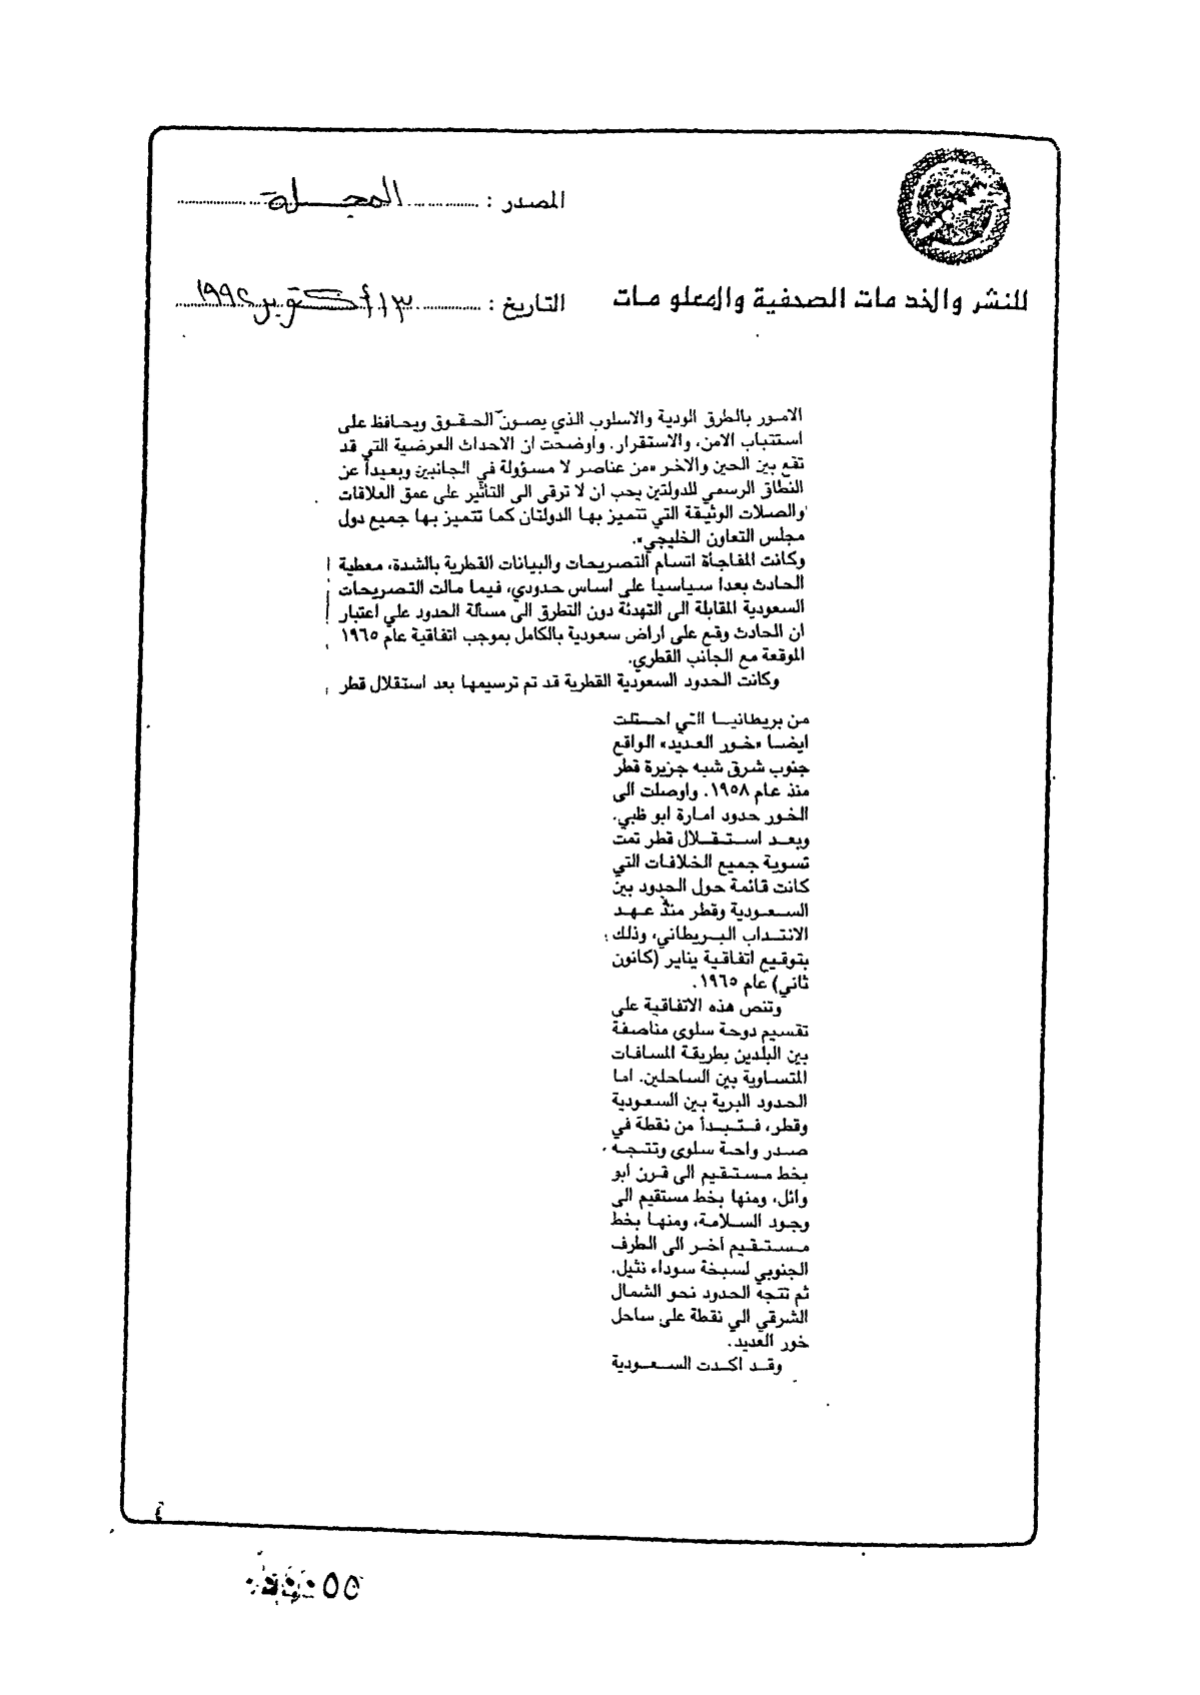 المصدر : المجلة
للنشر والخدمات الصحفية والمعلومات
التاريخ : ١٣ أكتوبر ١٩٩٢
الامور بالطرق الودية والاسلوب الذي يصون الحقوق ويحافظ على
استتباب الامن، والاستقرار. واوضحت ان الاحداث العرضية التي قد
تقع بين الحين والاخر «من عناصر لا مسؤولة في الجانبين وبعيداً عن
النطاق الرسمي للدولتين يجب ان لا ترقى الى التأثير على عمق العلاقات
والصلات الوثيقة التي تتميز بها الدولتان كما تتميز بها جميع دول
مجلس التعاون الخليجي».
وكانت المفاجأة اتسام التصريحات والبيانات القطرية بالشدة، معطية
الحادث بعدا سياسيا على اساس حدودي، فيما مالت التصريحات
السعودية المقابلة الى التهدئة دون التطرق الى مسألة الحدود على اعتبار
ان الحادث وقع على اراض سعودية بالكامل بموجب اتفاقية عام ١٩٦٥
الموقعة مع الجانب القطري.
وكانت الحدود السعودية القطرية قد تم ترسيمها بعد استقلال قطر
من بريطانيا التي احتلت
ايضا «خور العديد» الواقع
جنوب شرق شبه جزيرة قطر
منذ عام ١٩٥٨. واوصلت الى
الخور حدود امارة ابو ظبي.
وبعد استقلال قطر تمت
تسوية جميع الخلافات التي
كانت قائمة حول الحدود بين
السعودية وقطر منذ عهد
الانتداب البريطاني، وذلك
بتوقيع اتفاقية يناير (كانون
ثاني) عام ١٩٦٥.
وتنص هذه الاتفاقية على
تقسيم دوحة سلوى مناصفة
بين البلدين بطريقة المسافات
المتساوية بين الساحلين. اما
الحدود البرية بين السعودية
وقطر، فتبدأ من نقطة في
صدر واحة سلوى وتتجه
بخط مستقيم الى قرن ابو
وائل، ومنها بخط مستقيم الى
وجود السلامة، ومنها بخط
مستقيم آخر الى الطرف
الجنوبي لسبخة سوداء نثيل.
ثم تتجه الحدود نحو الشمال
الشرقي الى نقطة على ساحل
خور العديد.
وقد اكدت السعودية
٤
٥٥